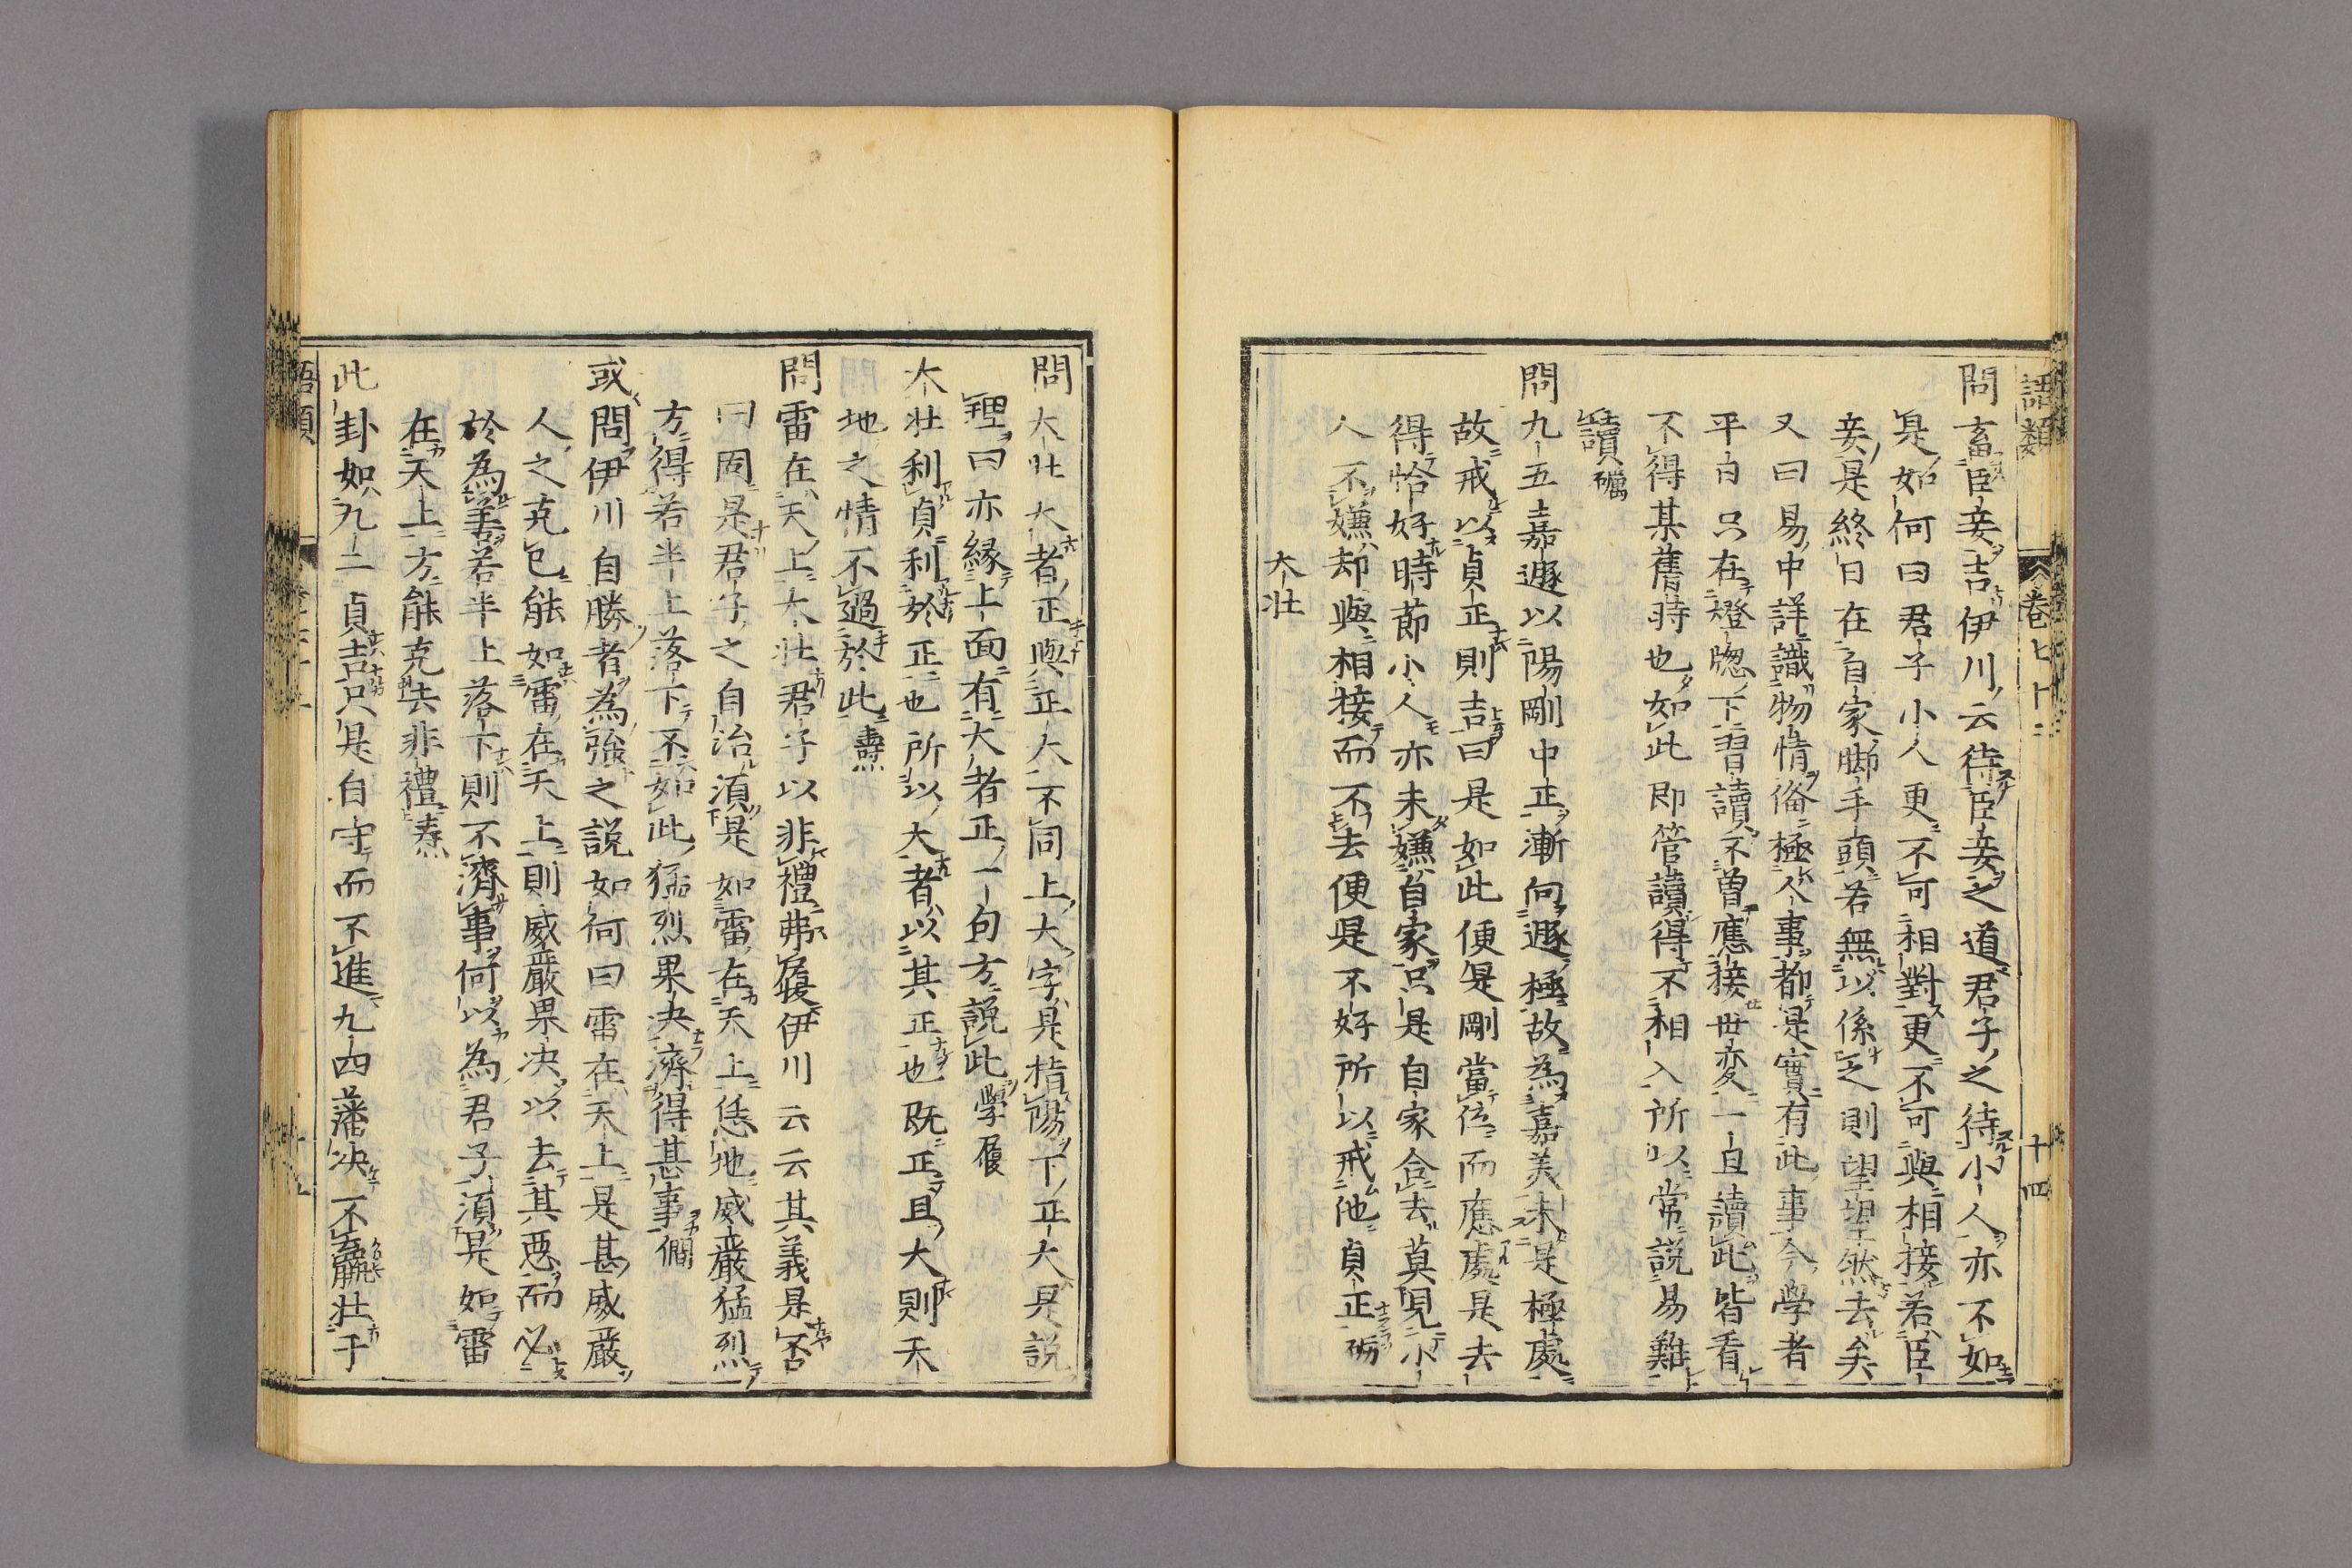 語類
卷七十二
十四
問畜臣妾吉伊川云待臣妾之道君子之待小人亦不如
是如何曰君子小人更不可相對更不可與相接若臣
妾是終日在自家脚手頭若無以係之則望望然去矣
又曰易中詳識物情備極人事都是實有此事今學者
平日只在燈牕下習讀不曾應接世変一旦讀此皆看
不得某舊時也如此即管讀得不相入所以常說易難
讀礪
問九五嘉遯以陽剛中正漸向遯極故為嘉美未是極處
故戒以貞正則吉曰是如此便是剛當位而應處是去
得恰好時節小人亦未嫌自家只是自家合去莫見小
人不嫌却與相接而不去便是不好所以戒他貞正砺
大壮
問大壮大者正與正大不同上大字是指陽下正大是說
理曰亦緣上面有大者正一句方說此學履
大壮利貞利於正也所以大者以其正也既正且大則天
地之情不過於此燾
問雷在天上大壮君子以非禮弗履伊川云云其義是否
曰固是君子之自治須是如雷在天上恁地威嚴猛烈
方得若半上落下不如此猛烈果决濟得甚事僩
或問伊川自勝者為强之說如何曰雷在天上是甚威嚴
人之克己能如雷在天上則威嚴果决以去其惡而必
於為善若半上落下則不濟事何以為君子須是如雷
在天上方能克去非禮燾
此卦如九二貞吉只是自守而不進九四藩决不羸壮于
語類